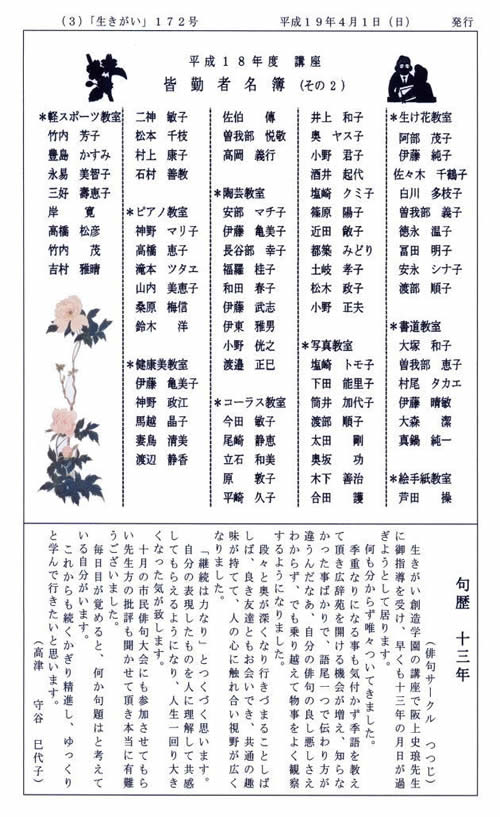 (3)「生きがい」172号
平成19年4月1日(日)
発行
平成18年度 講座
皆勤者名簿(その2)
*軽スポーツ教室
竹内 芳子
豊島 かすみ
永易 美智子
三好 壽恵子
岸 寛
高橋 松彦
竹内 茂
吉村 雅晴
二神 敏子
松本 千枝
村上 康子
石村 善教
*ピアノ教室
神野 マリ子
高橋 恵子
滝本 ツタエ
山内 美恵子
桑原 梅信
鈴木 洋
*健康美教室
伊藤 亀美子
神野 政江
馬越 晶子
妻鳥 清美
渡辺 静香
佐伯 傳
曽我部 悦敬
高岡 義行
*陶芸教室
安部 マチ子
伊藤 亀美子
長谷部 幸子
福羅 桂子
和田 春子
伊藤 武志
伊東 雅男
小野 侊之
渡邉 正巳
*コーラス教室
今田 敏子
尾崎 静恵
立石 和美
原 敦子
平崎 久子
井上 和子
奥 ヤス子
小野 君子
酒井 起代
塩崎 クミ子
篠原 陽子
近田 敞子
都築 みどり
土岐 孝子
松木 政子
小野 正夫
*写真教室
塩崎 トモ子
下田 能里子
筒井 加代子
渡部 順子
太田 剛
奥坂 功
木下 善治
合田 護
*生け花教室
阿部 茂子
伊藤 純子
佐々木 千鶴子
白川 多枝子
曽我部 義子
徳永 温子
冨田 明子
安永 シナ子
渡部 順子
*書道教室
大塚 和子
曽我部 恵子
村尾 タカエ
伊藤 晴敏
大森 潔
真鍋 純一
*絵手紙教室
芦田 操
句歴 十三年
(俳句サークル つつじ)
生きがい創造学園の講座で阪上史琅先生
に御指導を受け、早くも十三年の月日が過
ぎようとして居ります。
何も分からず唯々ついてきました。
季重なりになる事も気付かず季語を教え
て頂き広辞苑を開ける機会が増え、知らな
かった事ばかりで、語尾一つで伝わり方が
違うんだなあ、自分の俳句の良し悪しさえ
わからず、でも乗り越えて物事をよく観察
するようになりました。
段々と奥が深くなり行きづまることしば
しば、良き友達ともお会いでき、共通の趣
味が持てて、人の心に触れ合い視野が広く
なりました。
「継続は力なり」とつくづく思います。
自分の表現したものを人に理解して共感
してもらえるようになり、人生一回り大き
くなった気が致します。
十月の市民俳句大会にも参加させてもら
い先生方の批評も聞かせて頂き本当に有難
うございました。
毎日目が覚めると、何か句題はと考えて
いる自分がいます。
これからも続くかぎり精進し、ゆっくり
と学んで行きたいと思います。
(高津 守谷 巳代子)